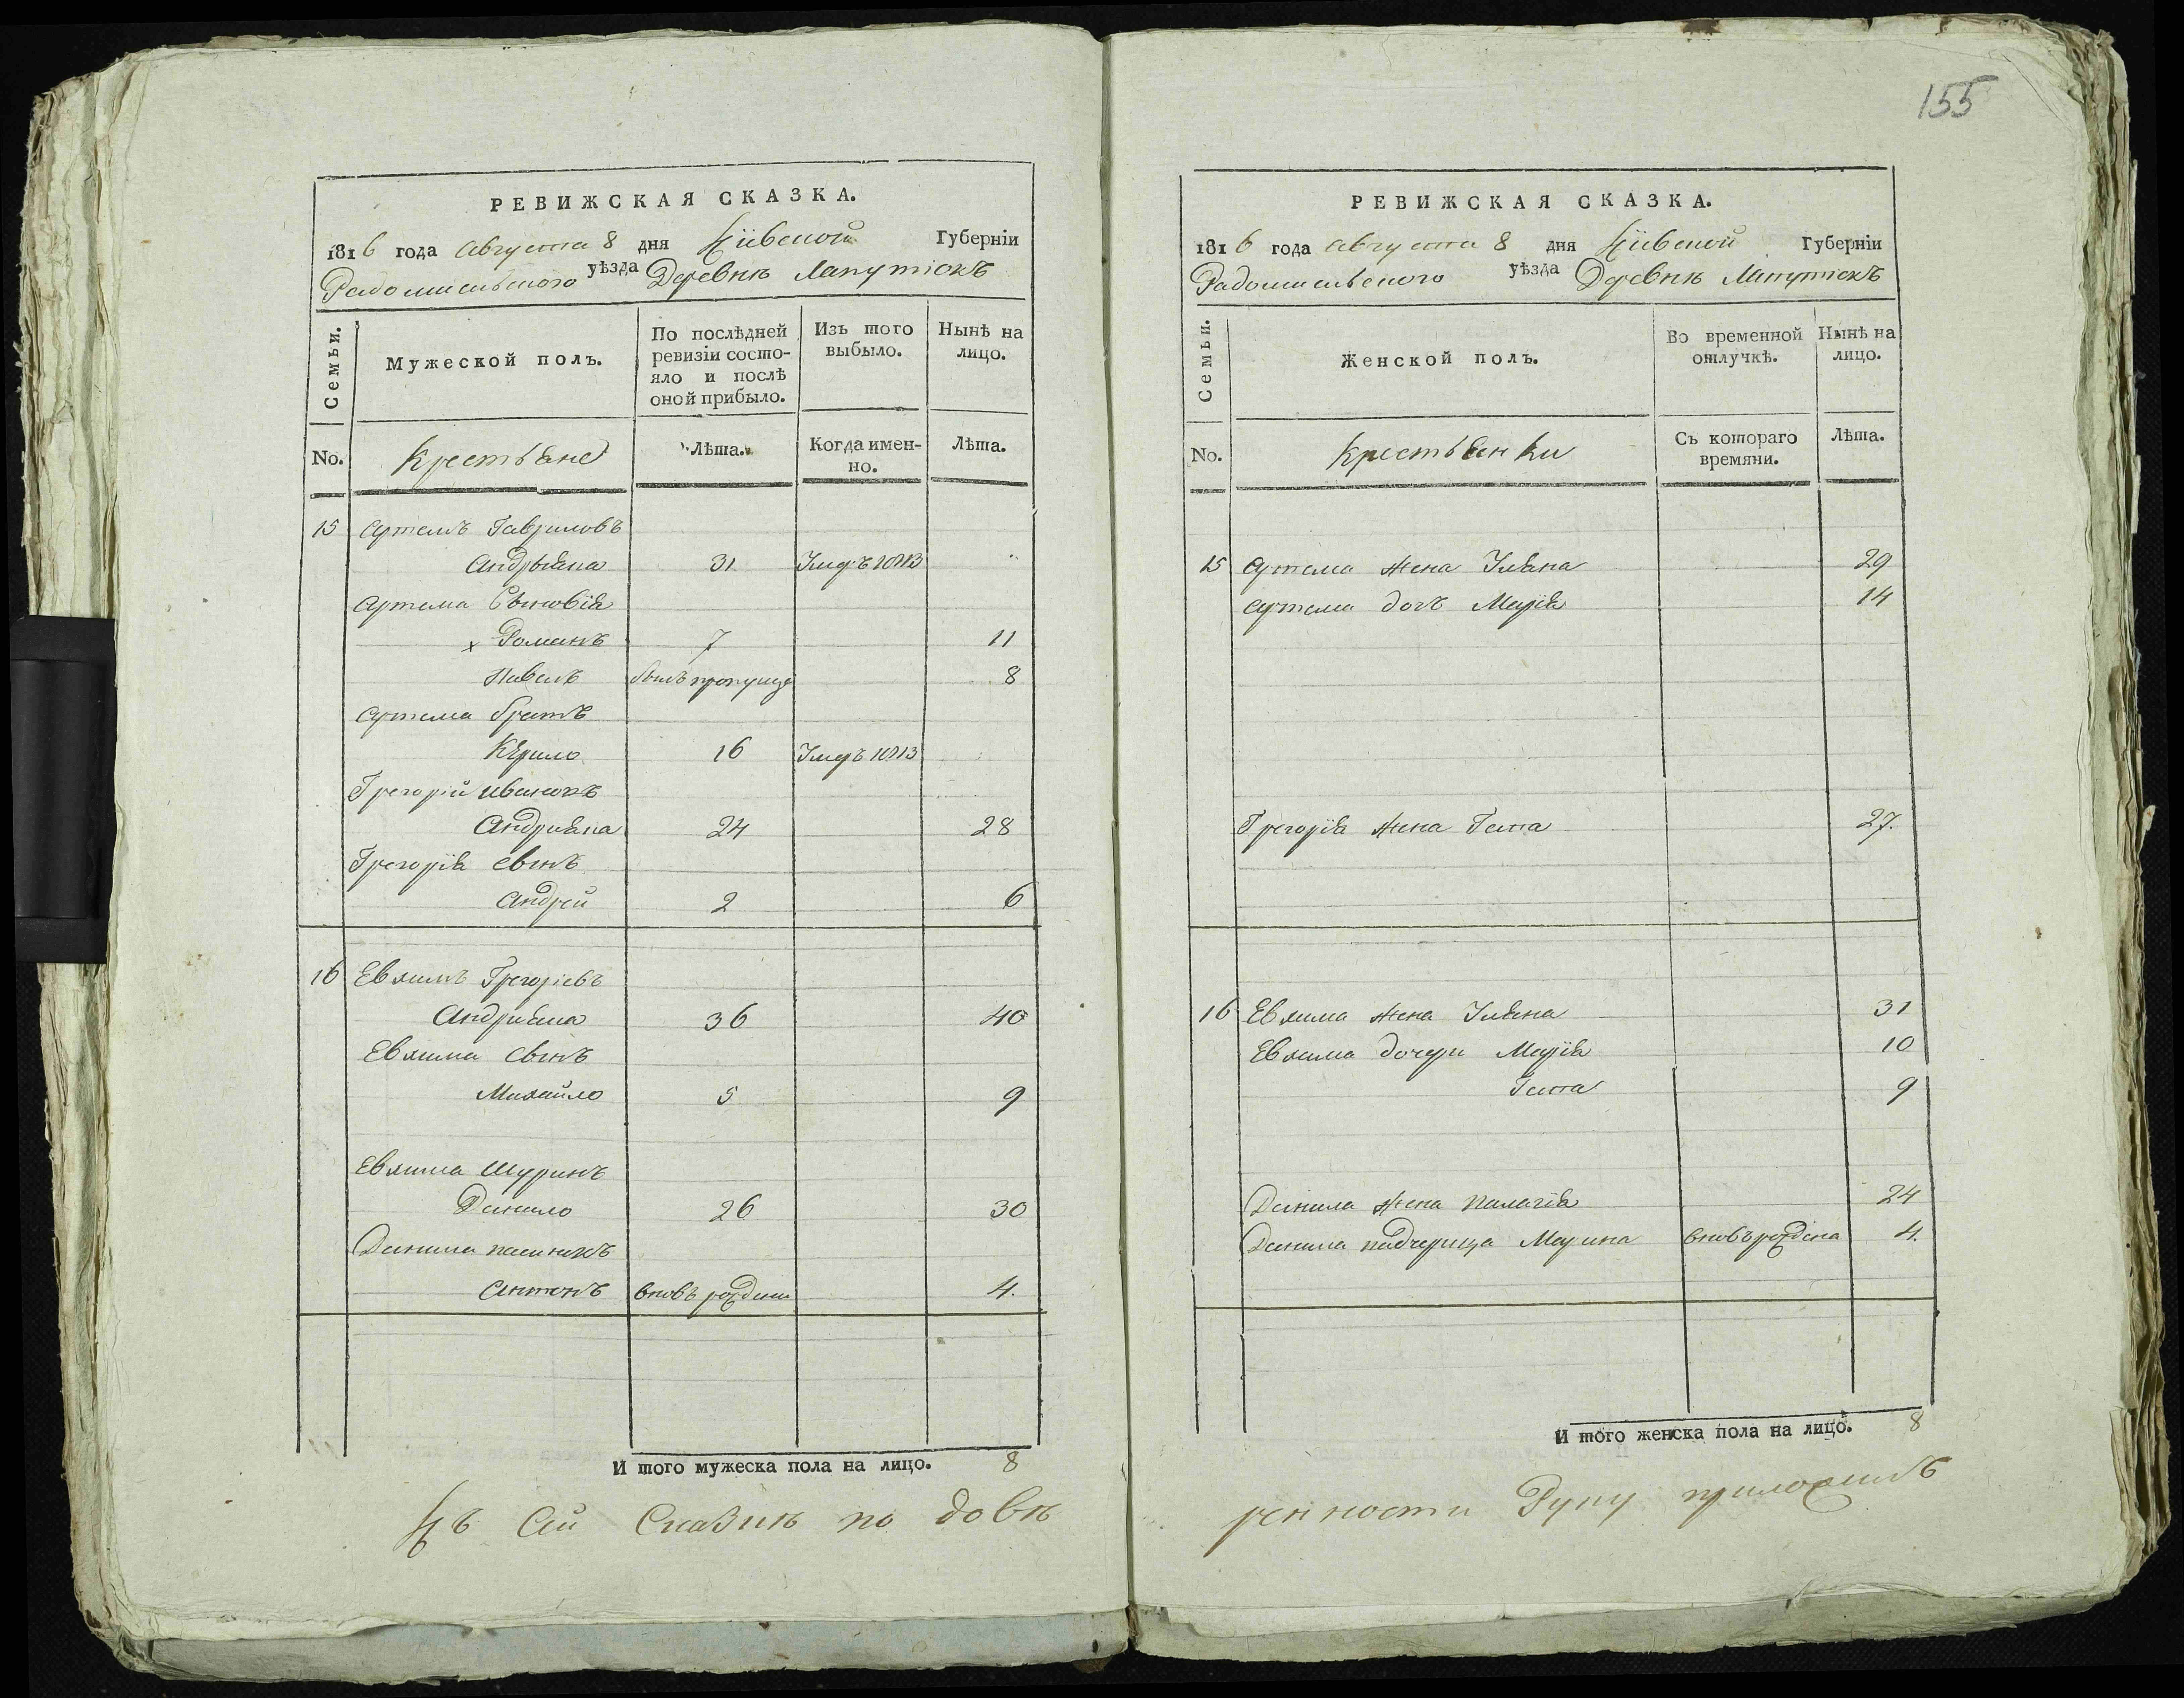 РЕВИЖСКАЯ СКАЗКА.
1816 года августа 8 дня Кіевской Губерніи
Радомисльского уѣзда Деревнѣ Лапутюкъ
Семьи.
Мужеской полъ.
По послѣдней ревизіи состо-
яло и послѣ оной прибыло.
Изъ того выбыло.
Нынѣ на лицо.
No. Крестьяне Лѣта. Когда имен-
но. Лѣта.
15 Артемъ Гавриловъ
Андрыяна 31 Умеръ 1813
Артема Сыновія
x Романъ 7 11
Павелъ былъ пропущ 8
Артема братъ
Кѣрило 16 Умеръ 1813
Грегорій
Андріяна 24 28
Грегорія сынъ
Андрей 2 6
16 Евхимъ Грегоріевъ
Андріяна 36 40
Евхима сынъ
Михайло 5 9
Евхима Шуринъ
Данило 26 30
Данила
Антонъ вновь рожденъ 4.
И того мужеска пола на лицо. 8
Къ Сей Сказкѣ по довѣ
155
РЕВИЖСКАЯ СКАЗКА.
1816 года августа 8 дня Кіевской Губерніи
Радомисльского уѣзда Деревнѣ Лапутюкъ
Семьи.
Женской полъ.
Во временной отлучкѣ.
Нынѣ на лицо.
No. Крестьянки Съ котораго
времяни. Лѣта.
15 Артема жена Уляна 29
Артема дочъ Марія 14
Грегорія жена Гапа 27.
16 Евхима жена Уляна 31
Евхима дочери Марія 10
Гапа 9
Данила жена Палагія 24
Данила падчерица Марина вновь рождена 4.
И того женска пола на лицо. 8
ренности Руку приложилъ